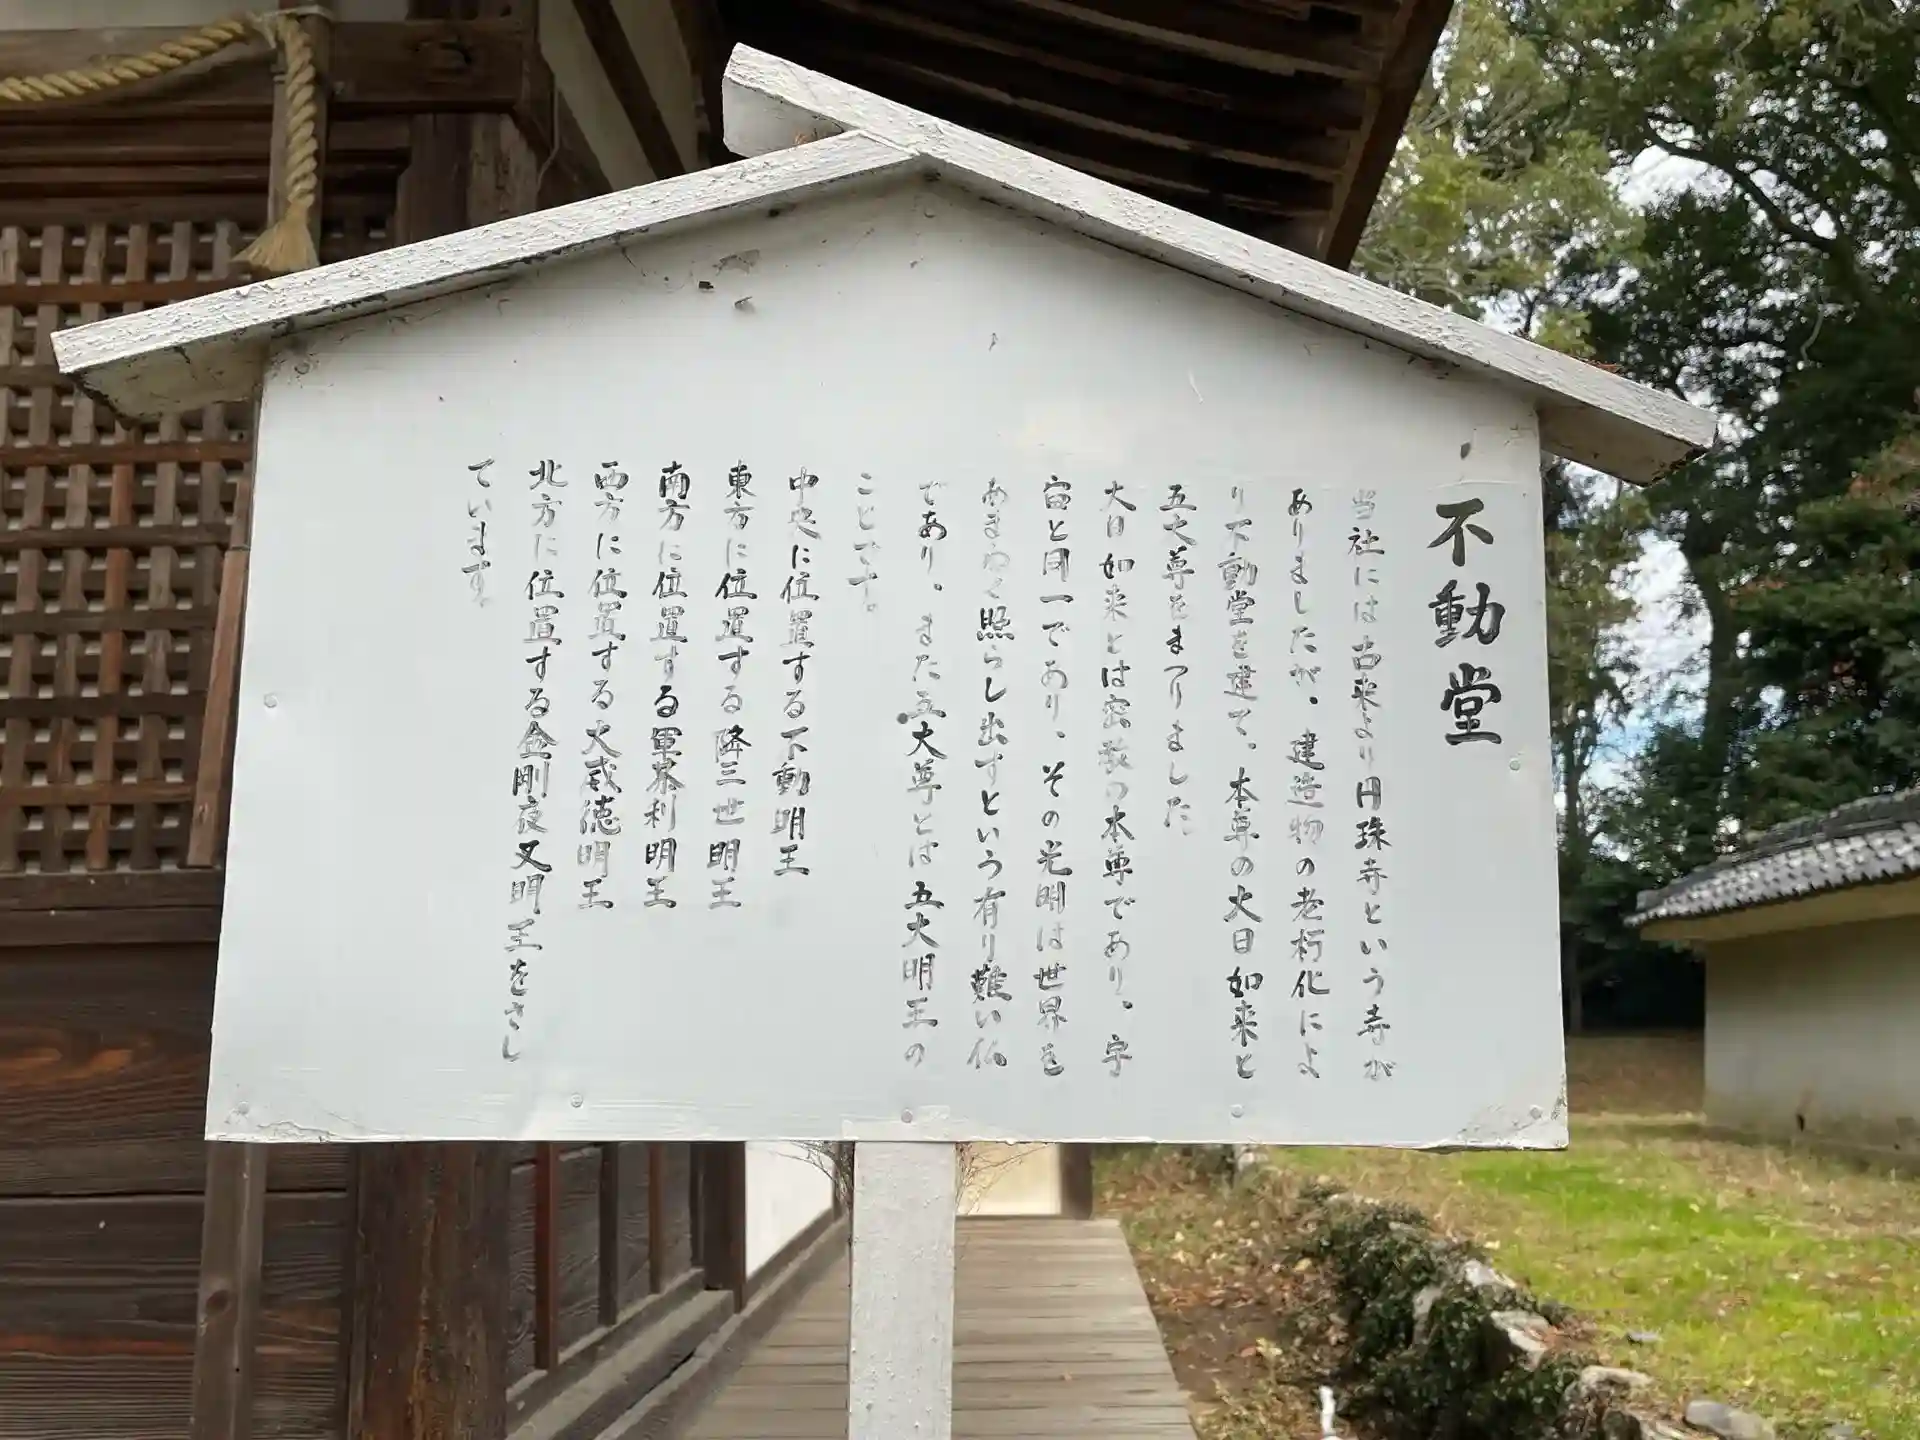 不動堂
当社には古来より円珠寺という寺が
ありましたが、建造物の老朽化によ
り不動堂を建て、本尊の大日如来と
五大尊をまつりました
大日如来とは密教の本尊であり、宇
宙と同一であり、その光明は世界を
あまねく照らし出すという有り難い仏
であり、また五大尊とは五大明王の
ことです。
中央に位置する不動明王
東方に位置する降三世明王
南方に位置する軍荼利明王
西方に位置する大威徳明王
北方に位置する金剛夜叉明王をさし
ています。